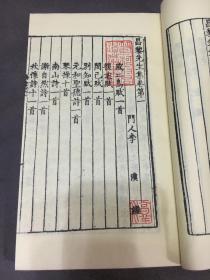 昌黎先生集卷第一
門人李 漢 編
感二鳥賦一首
復志賦一首
閔己賦一首
別知賦一首
元和聖德詩一首
琴操十首
南山詩一首
謝自然詩一首
秋懷詩十一首